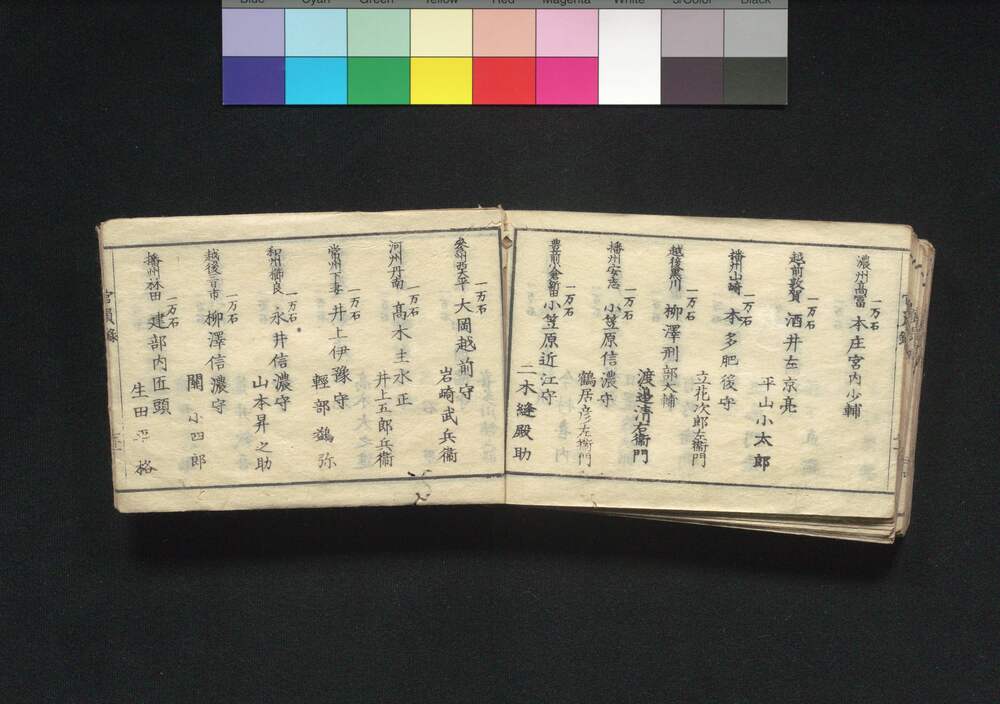 Blue Cyan Green Yellow Red Magenta White 3/Color Black
濃州高冨 一万石 本庄宮内少輔
越前敦賀 一万石 酒井左京亮
平山小太郎
播州山崎 一万石 本多肥後守
立花次郎左衞門
越後黒川 一万石 柳澤刑部大輔
渡邉清右衞門
播州安志 一万石 小笠原信濃守
鶴居彦左衞門
豊前小倉新田 一万石 小笠原近江守
二木縫殿助
參州西大平 一万石 大岡越前守
岩崎武兵衞
河州丹南 一万石 髙木主水正
井上五郎兵衞
常州下妻 一万石 井上伊豫守
輕部鵜弥
和州櫛良 一万石 永井信濃守
山本昇之助
越後三日市 一万石 柳澤信濃守
關小四郎
播州林田 一万石 建部内匠頭
生田平格
官員錄